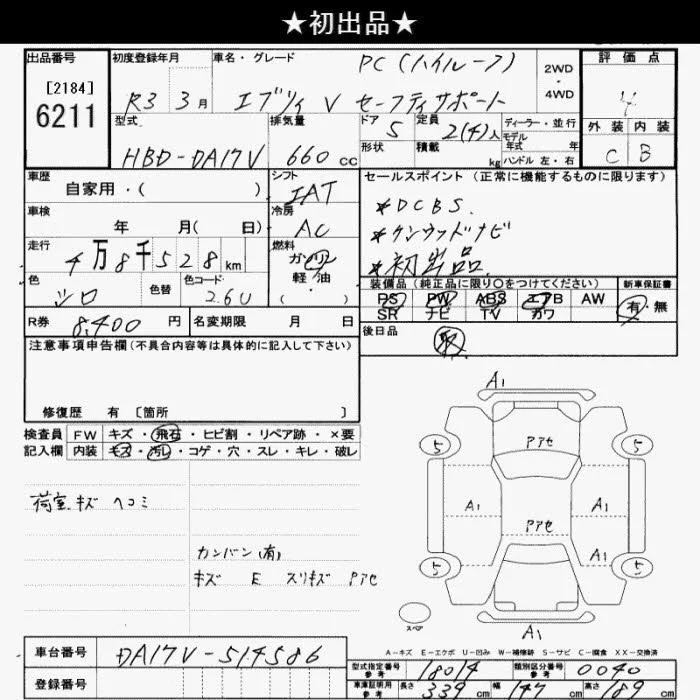 ★初出品★
出品番号
[2184]
6211
初度登録年月
R3 3月
車名・グレード
PC(ハイルーフ)
エブリイ V セーフティサポート
2WD
・
4WD
評価点
4
外装 内装
C B
型式
HBD-DA17V
排気量
660 cc
ドア 5
形状
定員 2(4)人
積載 kg
ディーラー・並行
モデル
年式 年
ハンドル 左・右
車歴
自家用・( )
シフト
IAT
車検
年 月( 日)
冷房
AC
走行
4万8千528km
燃料
ガソリン
軽油
・( )
色
シロ
色替
色コード
26U
R券 8,400 円
名変期限 月 日
セールスポイント(正常に機能するものに限ります)
*DCBS.
*ケンウッドナビ
*初出品.
装備品(純正品に限り○をつけてください)
PS PW ABS エアB AW
SR ナビ TV カワ
新車保証書
有・無
後日品
取
注意事項申告欄(不具合内容等は具体的に記入して下さい)
修復歴 有〔箇所 〕
検査員 FW キズ・飛石・ヒビ割・リペア跡・×要
記入欄 内装 キズ・汚レ・コゲ・穴・スレ・キレ・破レ
荷室キズ ヘコミ
カンバン(有)
キズ E スリキズ Pアセ
A1
5 Pアセ 5
A1 A1
Pアセ
A1
5 5
スペア
A1
A−キズ E−エクボ U−凹み W−補修跡 S−サビ C−腐食 XX−交換済
車台番号 DA17V-514586
登録番号
型式指定番号
参考
18014
類別区分番号
参考
0040
車庫証明用
参考
長さ 339 cm 幅 147 cm 高さ 189 cm